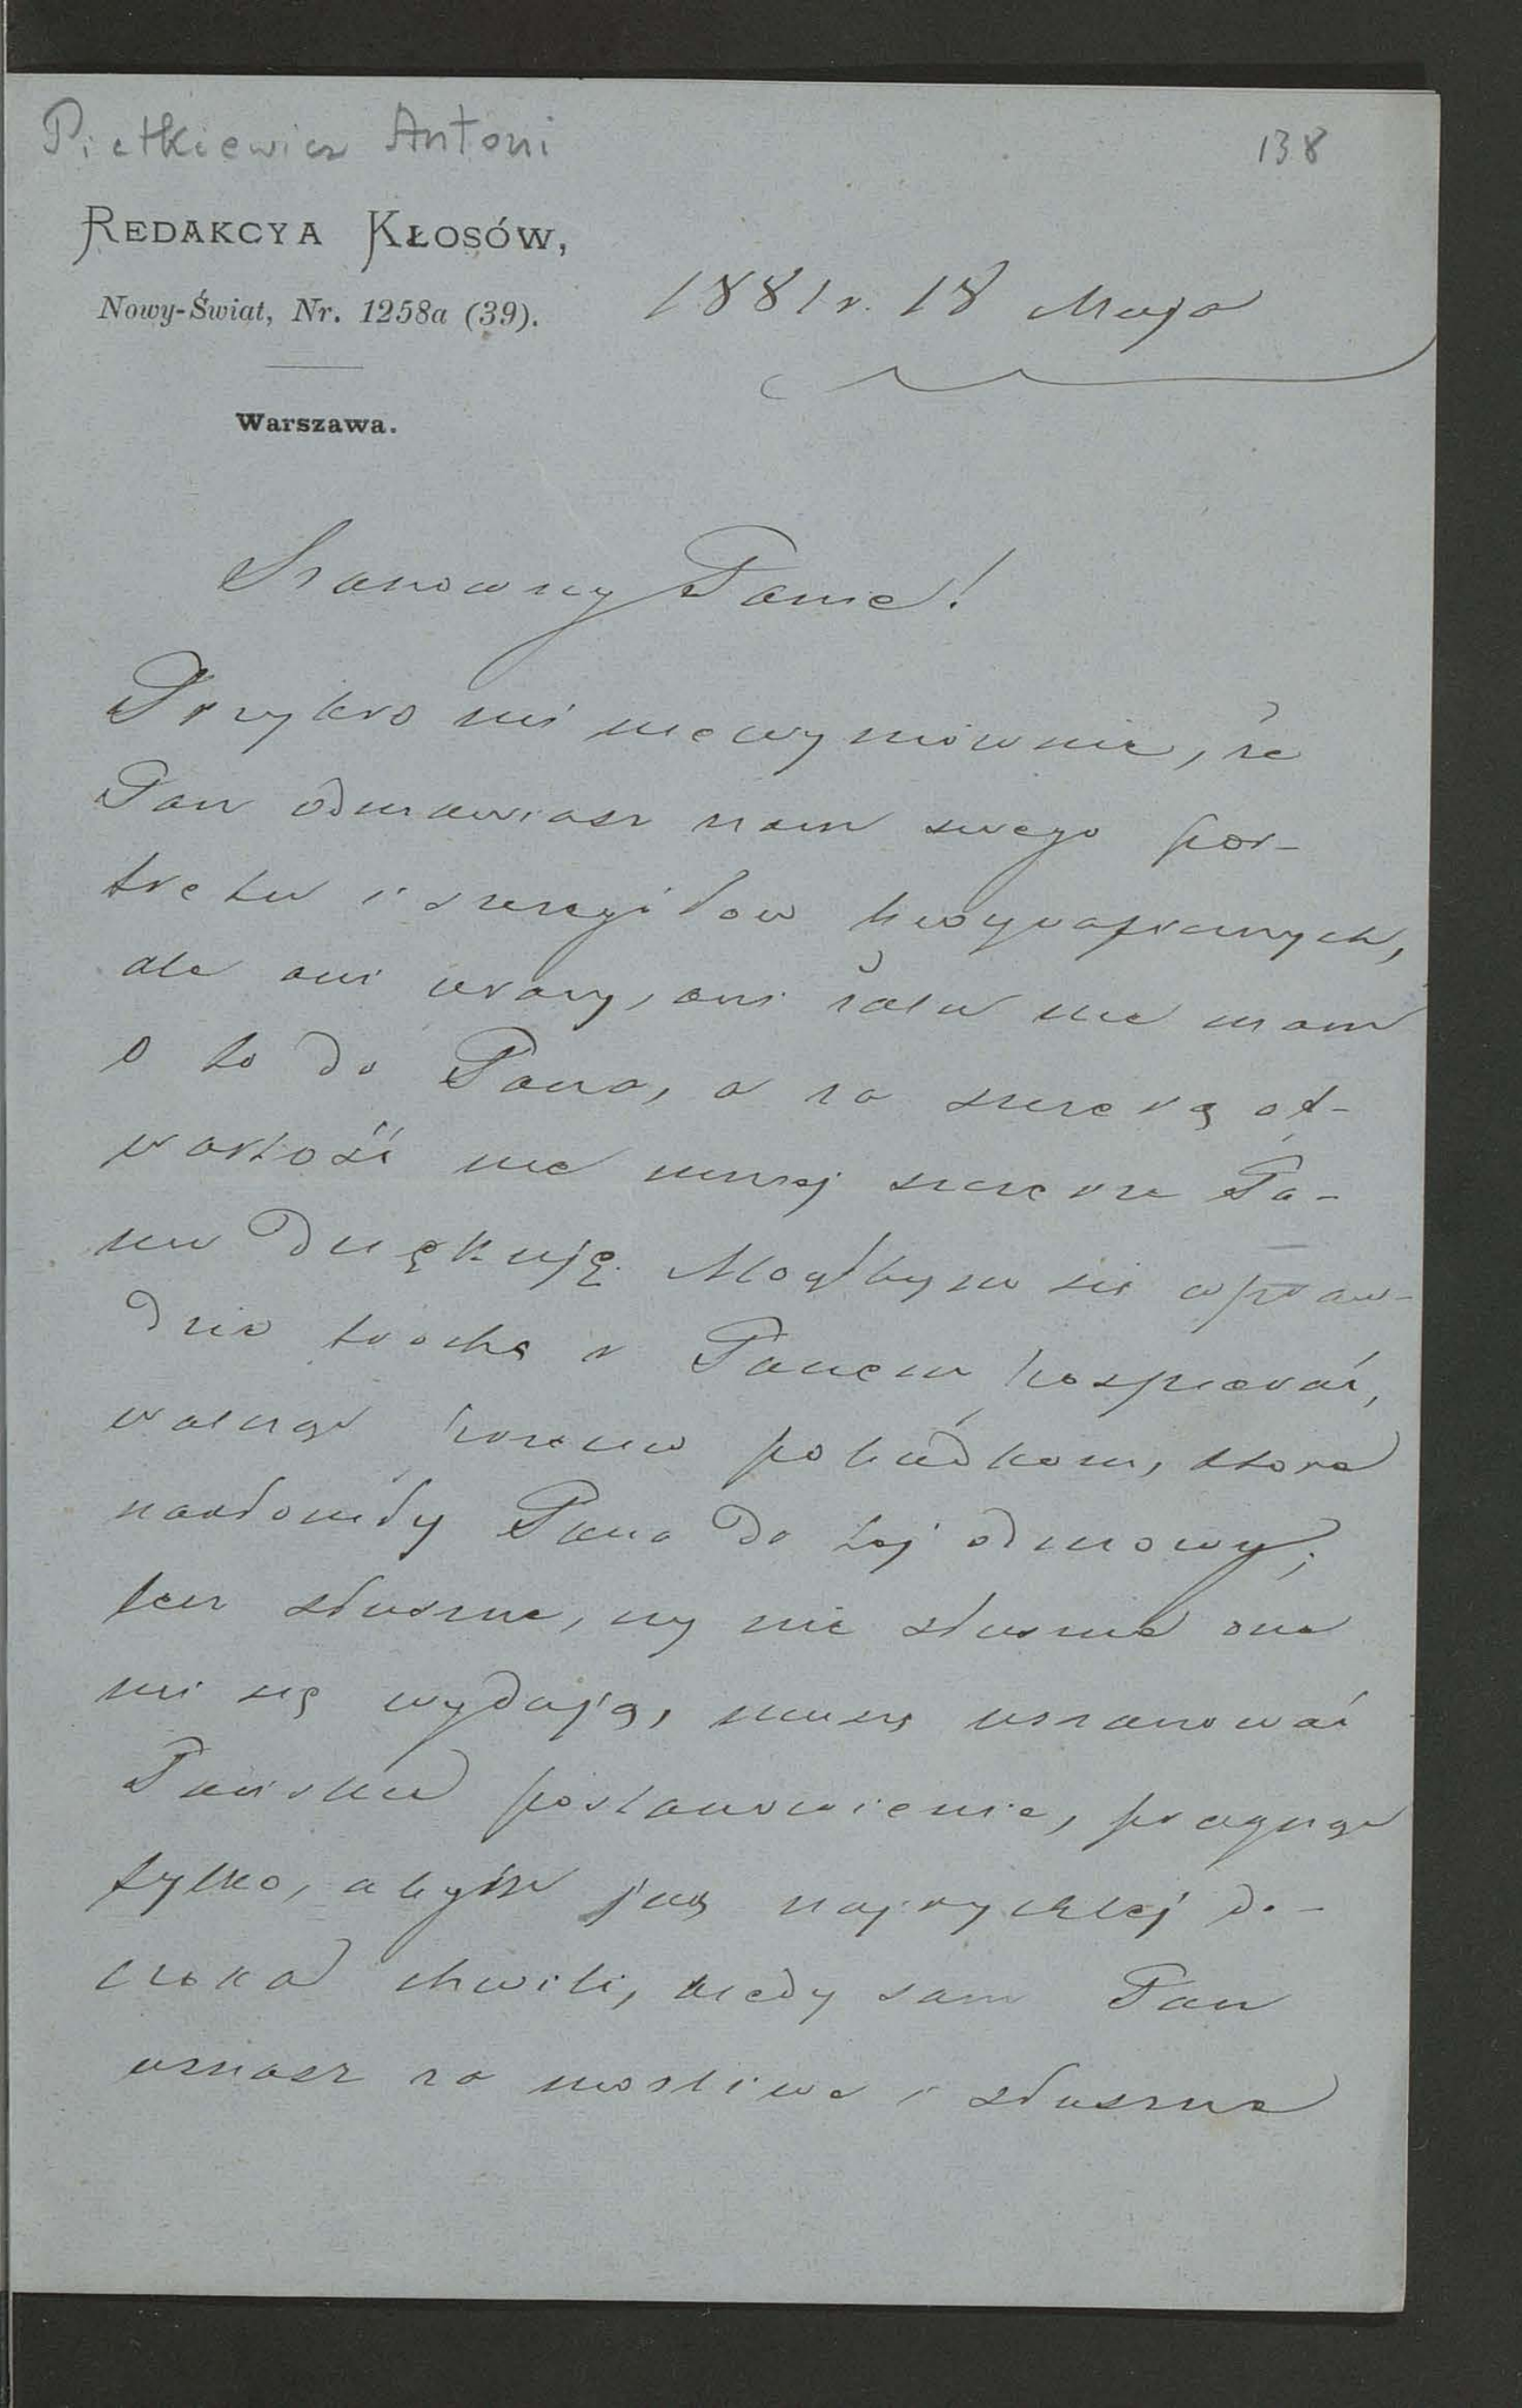 Pietkiewicz Antoni
138
REDAKCYA KŁOSÓW,
Nowy-Świat, Nr. 1258a (39).
1881 r. 18 Maja
Warszawa.
Szanowny Panie!
Przykro mi niewymównie, że
Pan odmawiasz nam swego por-
tretu i szczegółów biograficznych,
ale ani urazy, ani żalu nie mam
o to do Pana, a za szczerą ot-
wartość nie mniej szczerze Pa-
nu dziękuję. Mógłbym się wpraw-
dzie trochę z Panem pospierać,
walcząc przeciw pobudkom, które
nakłoniły Pana do tej odmowy;
lecz słuszne, czy nie słuszne one
mi się wydają, muszę uszanować
Pańskie postanowienie, pragnąc
tylko, abyśm jak najrychlej do-
czekał chwili, kiedy sam Pan
uznasz za możliwe i słuszne